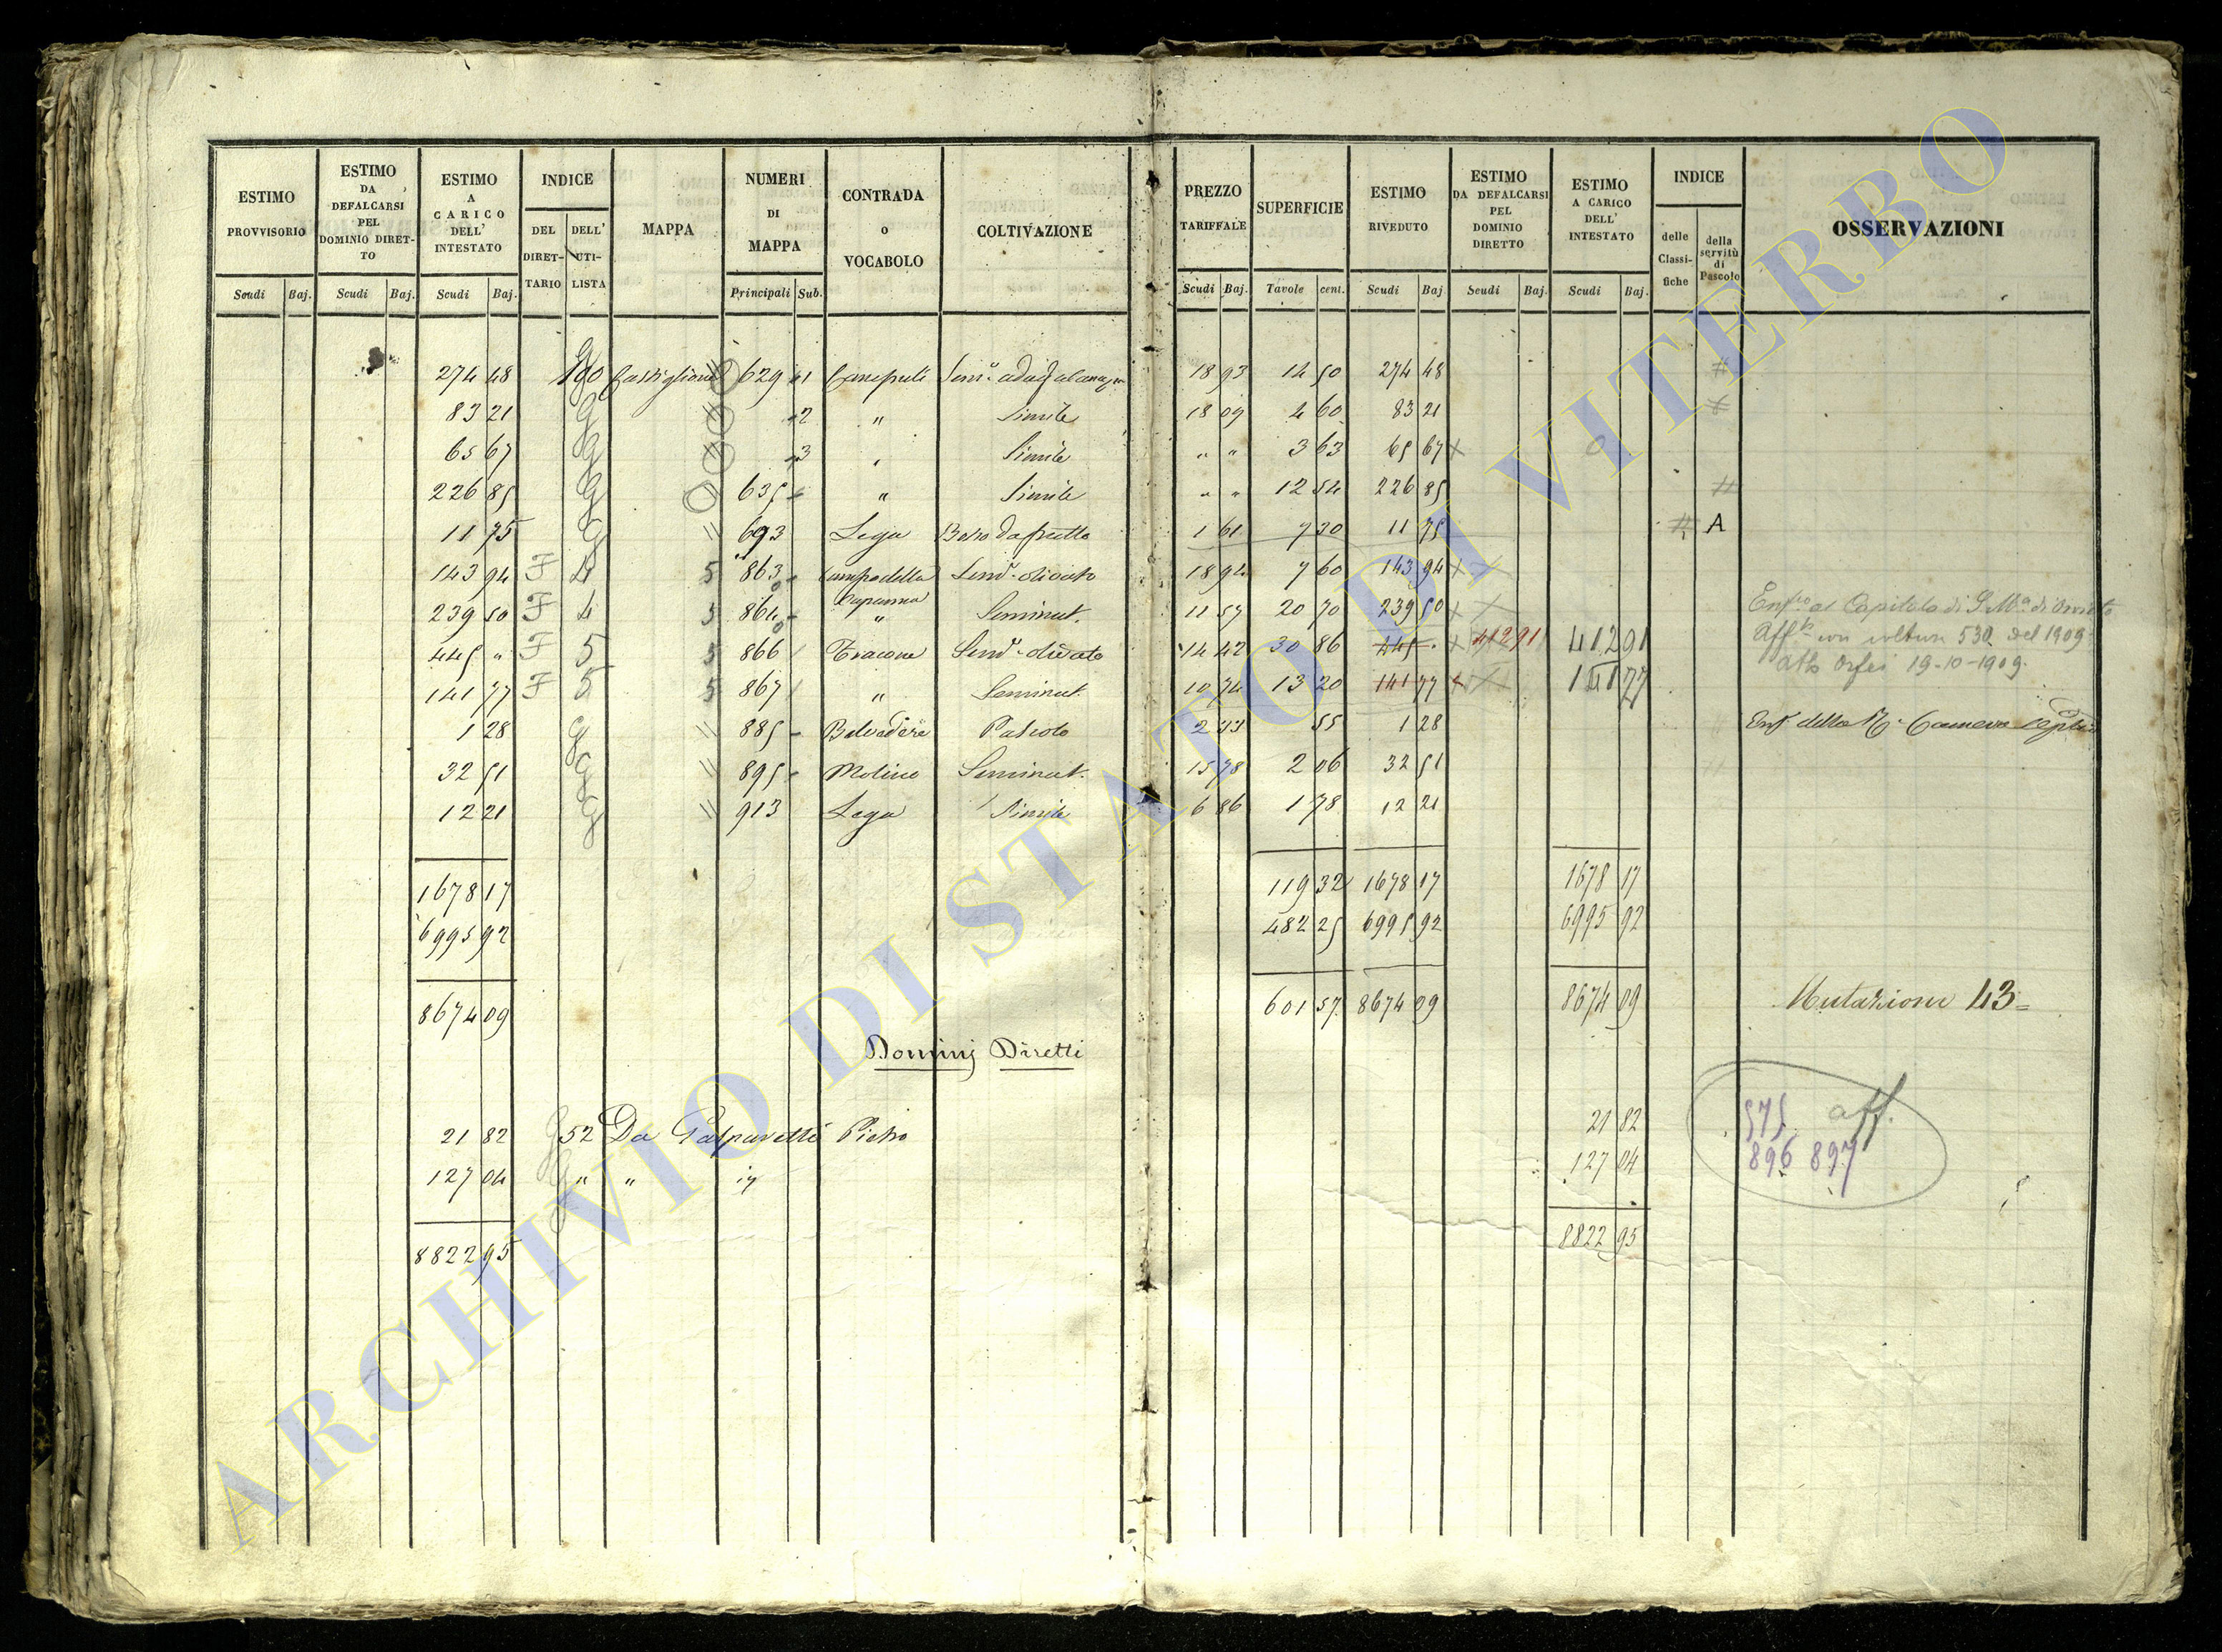 ESTIMO PROVVISORIO Scudi Baj.
ESTIMO DA DEFALCARSI PEL DOMINIO DIRETTO Scudi Baj.
ESTIMO A CARICO DELL' INTESTATO Scudi Baj.
INDICE DEL DIRETTARIO DELL' UTILISTA
MAPPA
NUMERI DI MAPPA Principali Sub.
CONTRADA o VOCABOLO
COLTIVAZIONE
PREZZO TARIFFALE Scudi Baj.
SUPERFICIE Tavole cent.
ESTIMO RIVEDUTO Scudi Baj.
ESTIMO DA DEFALCARSI PEL DOMINIO DIRETTO Scudi Baj.
ESTIMO A CARICO DELL' INTESTATO Scudi Baj.
INDICE delle Classifiche della servitù di Pascolo
OSSERVAZIONI
274 48 Castiglione 629 1 Canepuli 18 93 14 50 274 48
83 21 G 2 " Simile 18 09 4 60 83 21
65 67 G 3 " Simile " " 3 63 65 67 x
226 85 G 635 " Simile " " 12 54 226 85
11 75 G " 693 Lega Bosco da frutto 1 61 7 30 11 75 A
143 94 F 4 5 863 Campo della Capanna Sem.o olivato 18 94 7 60 143 94 x
239 50 F 4 5 864 " Seminat. 11 57 20 70 239 50 x
445 " F 5 5 866 Sem.o olivato 14 42 30 86 445 " x 412 91 412 91
141 77 F 5 5 867 " Seminat. 10 74 13 20 141 77 x 141 77
Aff.to con voltura 530 del 1909
19-10-1909.
1 28 G " 885 Belvedere Pascolo 2 33 55 1 28 Enf. della R. Camera
32 51 G " 895 Molino Seminat. 15 78 2 06 32 51
12 21 G " 913 Lega Simile 6 86 1 78 12 21
1678 17 119 32 1678 17 1678 17
6995 92 482 25 6995 92 6995 92
8674 09 601 57 8674 09 8674 09 Mutazione 43=
Dominj Diretti
21 82 G 52 Da Gasparetti Pietro 21 82 575 aff.
127 04 G " " 127 04 896 897
8822 95 8822 95
ARCHIVIO DI STATO DI VITERBO